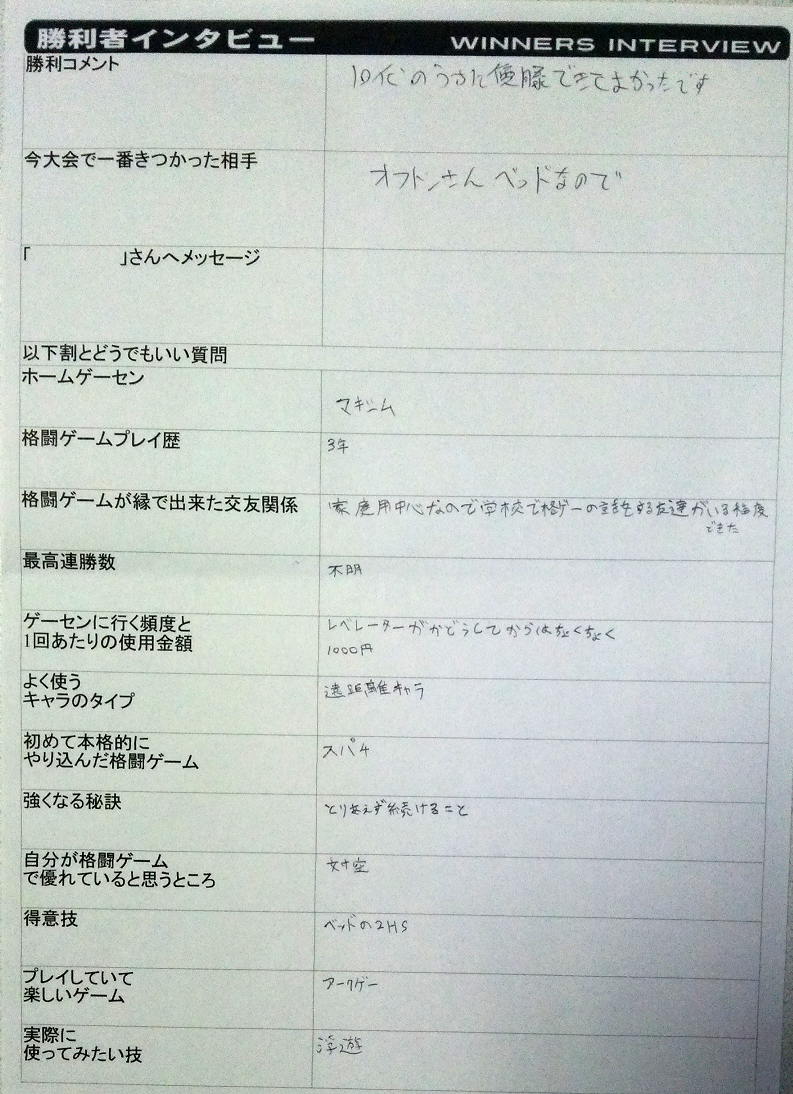 勝利者インタビュー WINNERS INTERVIEW
勝利コメント
10代のうちに優勝できてよかったです
今大会で一番きつかった相手
オフトンさん ベッドなので
「 」さんへメッセージ
以下割とどうでもいい質問
ホームゲーセン
マキシム
格闘ゲームプレイ歴
3年
格闘ゲームが縁で出来た交友関係
家庭用中心なので学校で格ゲーの話をする友達がいる程度
できた
最高連勝数
不明
ゲーセンに行く頻度と
1回あたりの使用金額
レベレーターがかどうしてからはちょくちょく
1000円
よく使う
キャラのタイプ
遠距離キャラ
初めて本格的に
やり込んだ格闘ゲーム
スパ4
強くなる秘訣
とりあえず続けること
自分が格闘ゲーム
で優れていると思うところ
対空
得意技
ベッドの2HS
プレイしていて
楽しいゲーム
アークゲー
実際に
使ってみたい技
浮遊